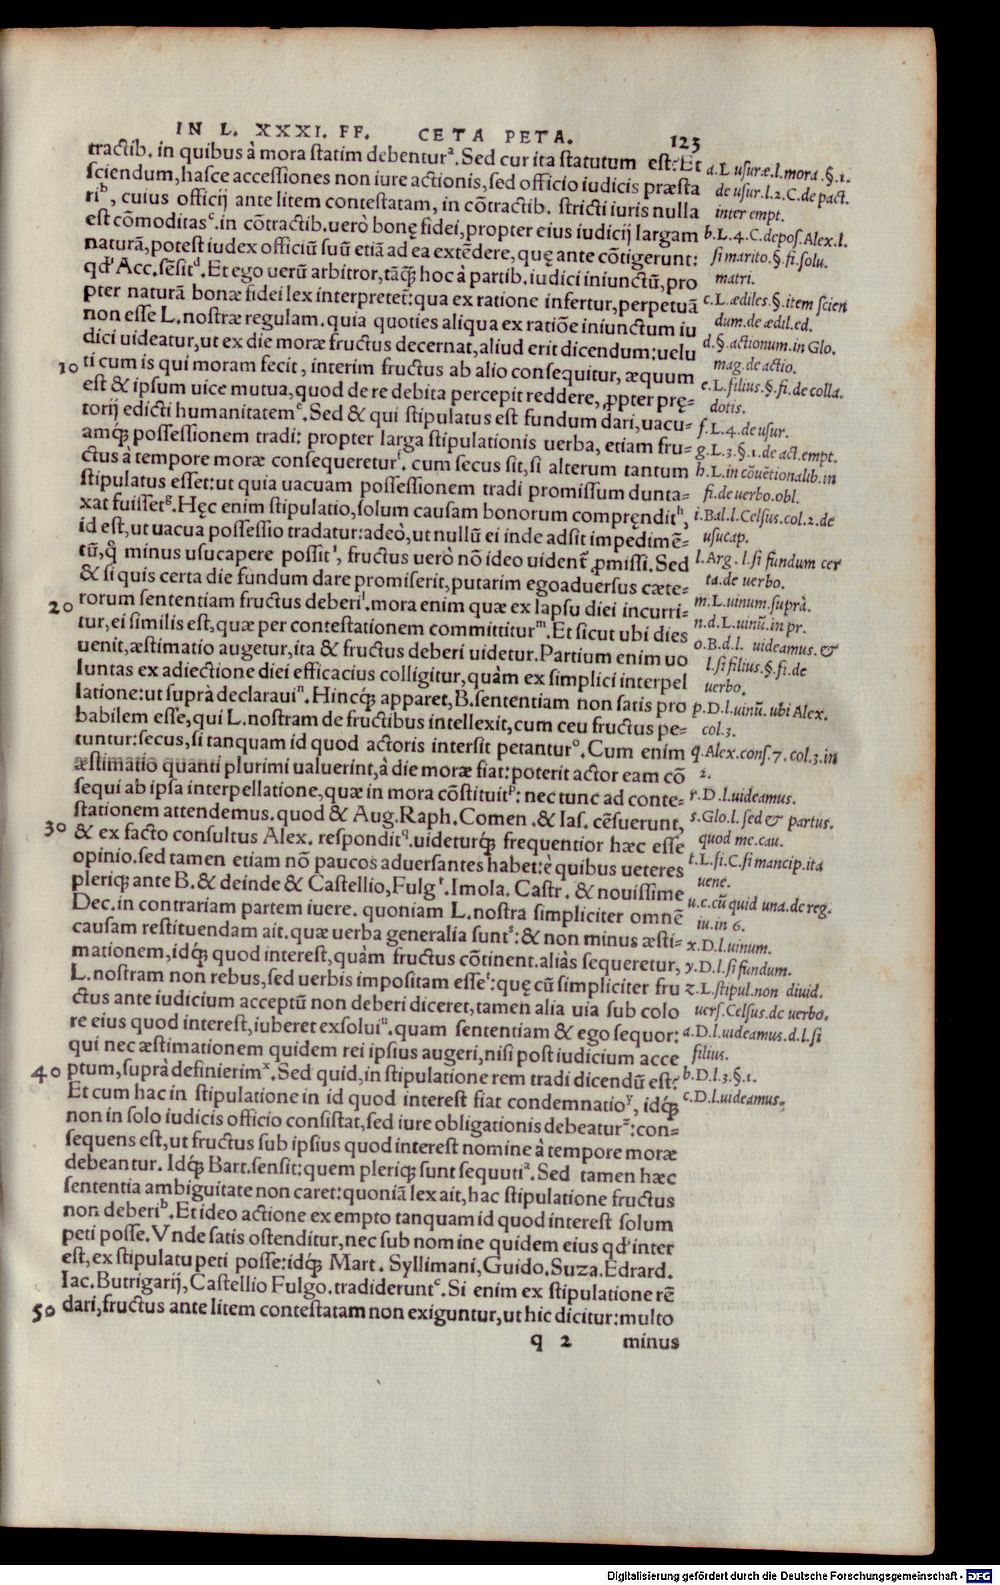 IN L. XXXI. FF. CETA PETA. 123
tractib. in quibus à mora ſtatim debenturᵃ. Sed cur ita ſtatutum eſt? Et
ſciendum, haſce acceſſiones non iure actionis, ſed officio iudicis præſta
riᵇ, cuius officij ante litem conteſtatam, in cõtractib. ſtricti iuris nulla
eſt cõmoditasᶜ. in cõtractib. uerò bonę fidei, propter eius iudicij largam
naturã, poteſt iudex officiũ ſuũ etiã ad ea extẽdere, quę ante cõtigerunt:
qđ Acc. ſẽſitᵈ. Et ego uerũ arbitror, tãꝗ̃ hoc à partib. iudici iniunctũ, pro
pter naturã bonæ fidei lex interpretet̃: qua ex ratione infertur, perpetuã
non eſſe L. noſtræ regulam. quia quoties aliqua ex ratiõe iniunctum iu
dici uideatur, ut ex die moræ fructus decernat, aliud erit dicendum: uelu
10 ti cum is qui moram fecit, interim fructus ab alio conſequitur, æquum
eſt & ipſum uice mutua, quod de re debita percepit reddere, ꝓpter prę=
torij edicti humanitatemᵉ. Sed & qui ſtipulatus eſt fundum dari, uacu=
amꝗ; poſſeſſionem tradi: propter larga ſtipulationis uerba, etiam fru=
ctus à tempore moræ conſequereturᶠ. cum ſecus ſit, ſi alterum tantum
ſtipulatus eſſet: ut quia uacuam poſſeſſionem tradi promiſſum dunta=
xat fuiſſetᵍ. Hęc enim ſtipulatio, ſolum cauſam bonorum compręnditʰ,
id eſt, ut uacua poſſeſſio tradatur: adeò, ut nullũ ei inde adſit impedimẽ=
tũ, q̊ minus uſucapere poſſitⁱ, fructus uerò nõ ideo uident̃ ꝓmiſſi. Sed
& ſi quis certa die fundum dare promiſerit, putarim ego aduerſus cæte=
20 rorum ſententiam fructus deberiˡ. mora enim quæ ex lapſu diei incurri=
tur, ei ſimilis eſt, quæ per conteſtationem committiturᵐ. Et ſicut ubi dies
uenit, æſtimatio augetur, ita & fructus deberi uidetur. Partium enim uo
luntas ex adiectione diei efficacius colligitur, quàm ex ſimplici interpel
latione: ut ſuprà declarauiⁿ. Hincꝗ; apparet, B. ſententiam non ſatis pro
babilem eſſe, qui L. noſtram de fructibus intellexit, cum ceu fructus pe=
tuntur: ſecus, ſi tanquam id quod actoris interſit petanturᵒ. Cum enim
æſtimatio quanti plurimi ualuerint, à die moræ fiat: poterit actor eam cõ
ſequi ab ipſa interpellatione, quæ in mora cõſtituitᵖ: nec tunc ad conte=
ſtationem attendemus. quod & Aug. Raph. Comen. & Iaſ. cẽſuerunt,
30 & ex facto conſultus Alex. reſponditq. uideturꝗ; frequentior hæc eſſe
opinio. ſed tamen etiam nõ paucos aduerſantes habet: è quibus ueteres
pleriꝗ; ante B. & deinde & Caſtellio, Fulgʳ. Imola. Caſtr. & nouiſſime
Dec. in contrariam partem iuere. quoniam L. noſtra ſimpliciter omnẽ
cauſam reſtituendam ait. quæ uerba generalia ſuntˢ: & non minus æſti=
mationem, idꝗ; quod intereſt, quàm fructus cõtinent. aliàs ſequeretur,
L. noſtram non rebus, ſed uerbis impoſitam eſſeᵗ: quę cũ ſimpliciter fru
ctus ante iudicium acceptũ non deberi diceret, tamen alia uia ſub colo
re eius quod intereſt, iuberet exſoluiᵘ. quam ſententiam & ego ſequor:
qui nec æſtimationem quidem rei ipſius augeri, niſi poſt iudicium acce
40 ptum, ſuprà definierimˣ. Sed quid, in ſtipulatione rem tradi dicendũ eſt?
Et cum hac in ſtipulatione in id quod intereſt fiat condemnatioʸ, idꝗ;
non in ſolo iudicis officio conſiſtat, ſed iure obligationis debeaturᶻ: con=
ſequens eſt, ut fructus ſub ipſius quod intereſt nomine à tempore moræ
debeantur. Idꝗ; Bart. ſenſit: quem pleriꝗ; ſunt ſequutiᵃ. Sed tamen hæc
ſententia ambiguitate non caret: quoniã lex ait, hac ſtipulatione fructus
non deberiᵇ. Et ideo actione ex empto tanquam id quod intereſt ſolum
peti poſſe. Vnde ſatis oſtenditur, nec ſub nomine quidem eius qđ inter
eſt, ex ſtipulatu peti poſſe: idꝗ; Mart. Syllimani, Guido. Suza. Edrard.
Iac. Butrigarij, Caſtellio Fulgo. tradideruntᶜ. Si enim ex ſtipulatione rẽ
50 dari, fructus ante litem conteſtatam non exiguntur, ut hic dicitur: multo
q 2 minus
a. L uſuræ. l. mora. §. 1.
de uſur. l. 2. C. de pact.
inter empt.
b. L. 4. C. depoſ. Alex. l.
ſi marito. §. fi. ſolu.
matri.
c. L. ædiles. §. item ſcien
dum. de ædil. ed.
d. §. actionum. in Glo.
mag. de actio.
e. L. filius. §. fi. de colla.
dotis.
f. L. 4. de uſur.
g. L. 3. §. 1. de act. empt.
h. L. in cõuẽtionalib. in
fi. de uerbo. obl.
i. Bal. l. Celſus. col. 2. de
uſucap.
l. Arg. l. ſi fundum cer
ta. de uerbo.
m. L. uinum. ſuprà.
n. d. L. uinũ. in pr.
o. B. d. l. uideamus. &
l. ſi filius. §. fi. de
uerbo.
p. D. l. uinũ. ubi Alex.
col. 3.
q. Alex. conſ. 7. col. 3. in
2.
r. D. l. uideamus.
s. Glo. l. ſed & partus.
quod me. cau.
t. L. ſi. C. ſi mancip. ita
uene.
u. c. cũ quid una. de reg.
iu. in 6.
x. D. l. uinum.
y. D. l. ſi fundum.
z. L. ſtipul. non diuid.
uerſ. Celſus. de uerbo.
a. D. l. uideamus. d. l. ſi
filius.
b. D. l. 3. §. 1.
c. D. l. uideamus.
Digitalisierung gefördert durch die Deutsche Forschungsgemeinschaft - DFG